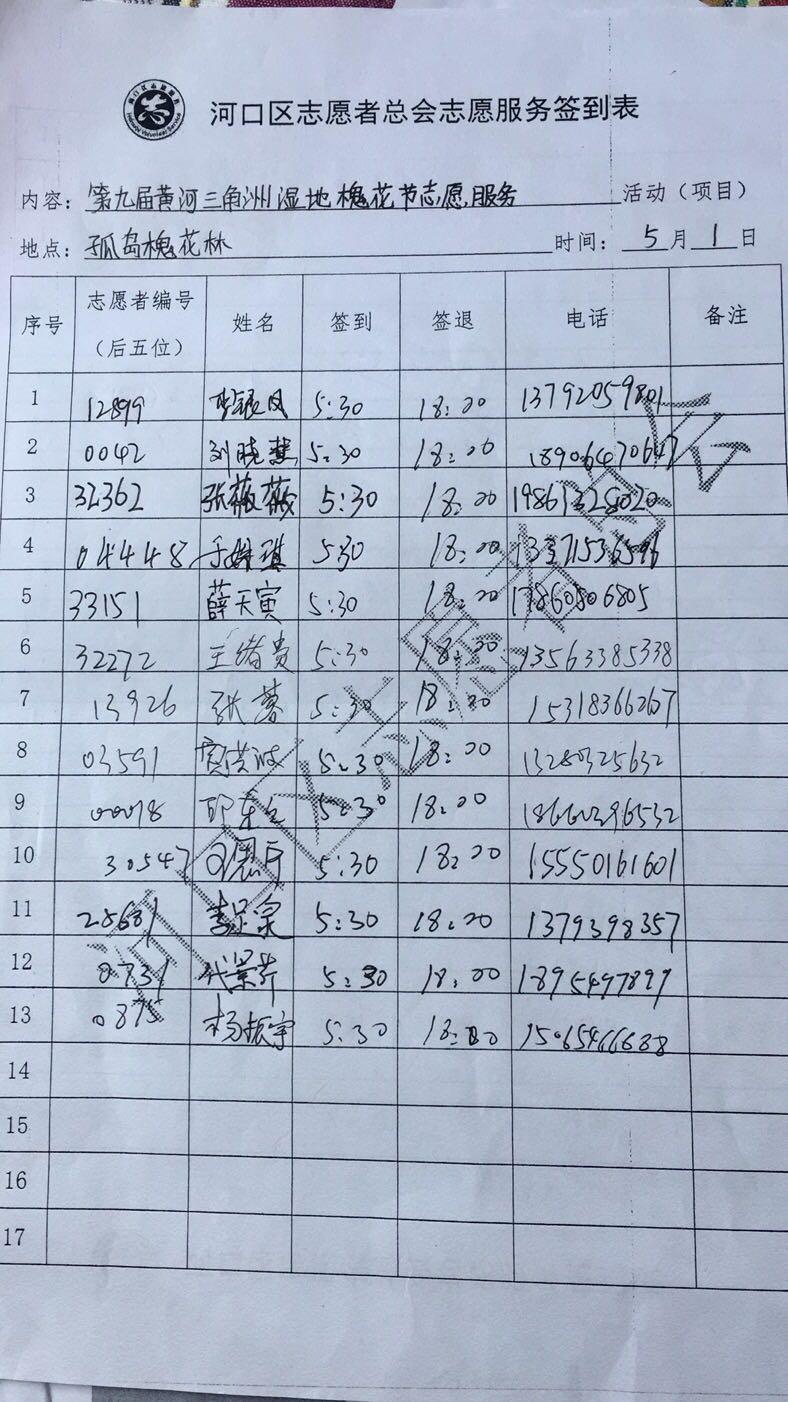 河口区志愿者总会志愿服务签到表
内容：第九届黄河三角洲湿地槐花节志愿服务 活动（项目）
地点：孤岛槐花林 时间：5月1日
序号 志愿者编号（后五位） 姓名 签到 签退 电话 备注
1 12899 李银凤 5:30 18:20 13792059801
2 0042 刘晓慧 5:30 18:20 18906470647
3 32362 张薇薇 5:30 18:20 19861328020
4 04448 5:30 18:20
5 33151 薛天寅 5:30 18:20 17860506805
6 32272 王绪贵 5:30 18:30 13563385338
7 13926 张蓉 5:30 18:20 15318366267
8 03591 5:30 18:20 13280325632
9 00078 5:30 18:20 18660396532
10 30547 5:30 18:20 15550161601
11 28681 5:30 18:20 1379398357
12 0731 5:30 18:20 1895497897
13 0875 杨振宇 5:30 18:20 15065466688
14
15
16
17